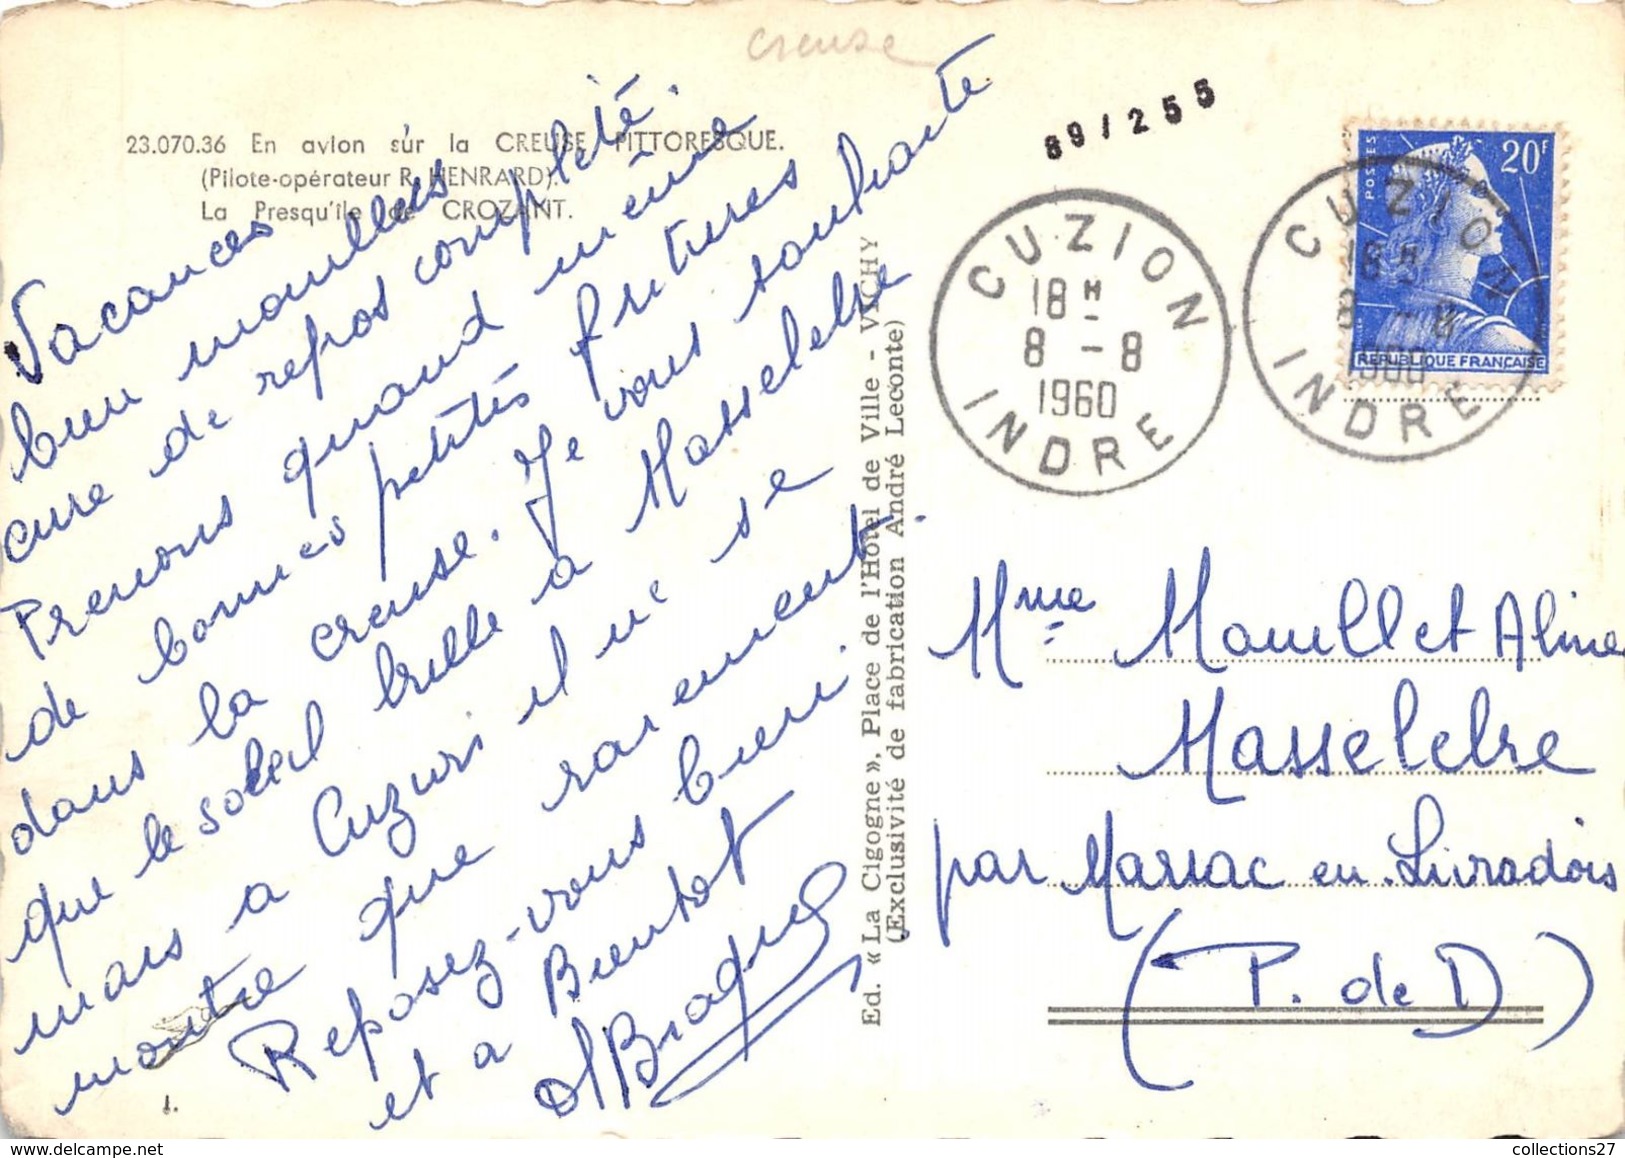 creuse
23.070.36 En avion sur la CREUSE PITTORESQUE.
(Pilote-opérateur R. HENRARD).
La Presqu'île de CROZANT.
Vacances
bien mouillées
cure de repos complète.
Prenons quand même
de bonnes petites fritures
dans la creuse. Je vous souhaite
que le soleil brille a Masselebre
mais a Cuzion il n'se
montre que rarement.
Reposez-vous bien.
et a Bientot
Ed. « La Cigogne », Place de l'Hôtel de Ville - VICHY
(Exclusivité de fabrication André Leconte)
89/255
CUZION
18 H
8 - 8
1960
INDRE
POSTES
20F
REPUBLIQUE FRANÇAISE
CUZION
18 H
8 - 8
1960
INDRE
Mme Mouillet Aline
Masselebre
par Marsac en Livradois
(P. de D)
1.
collections27